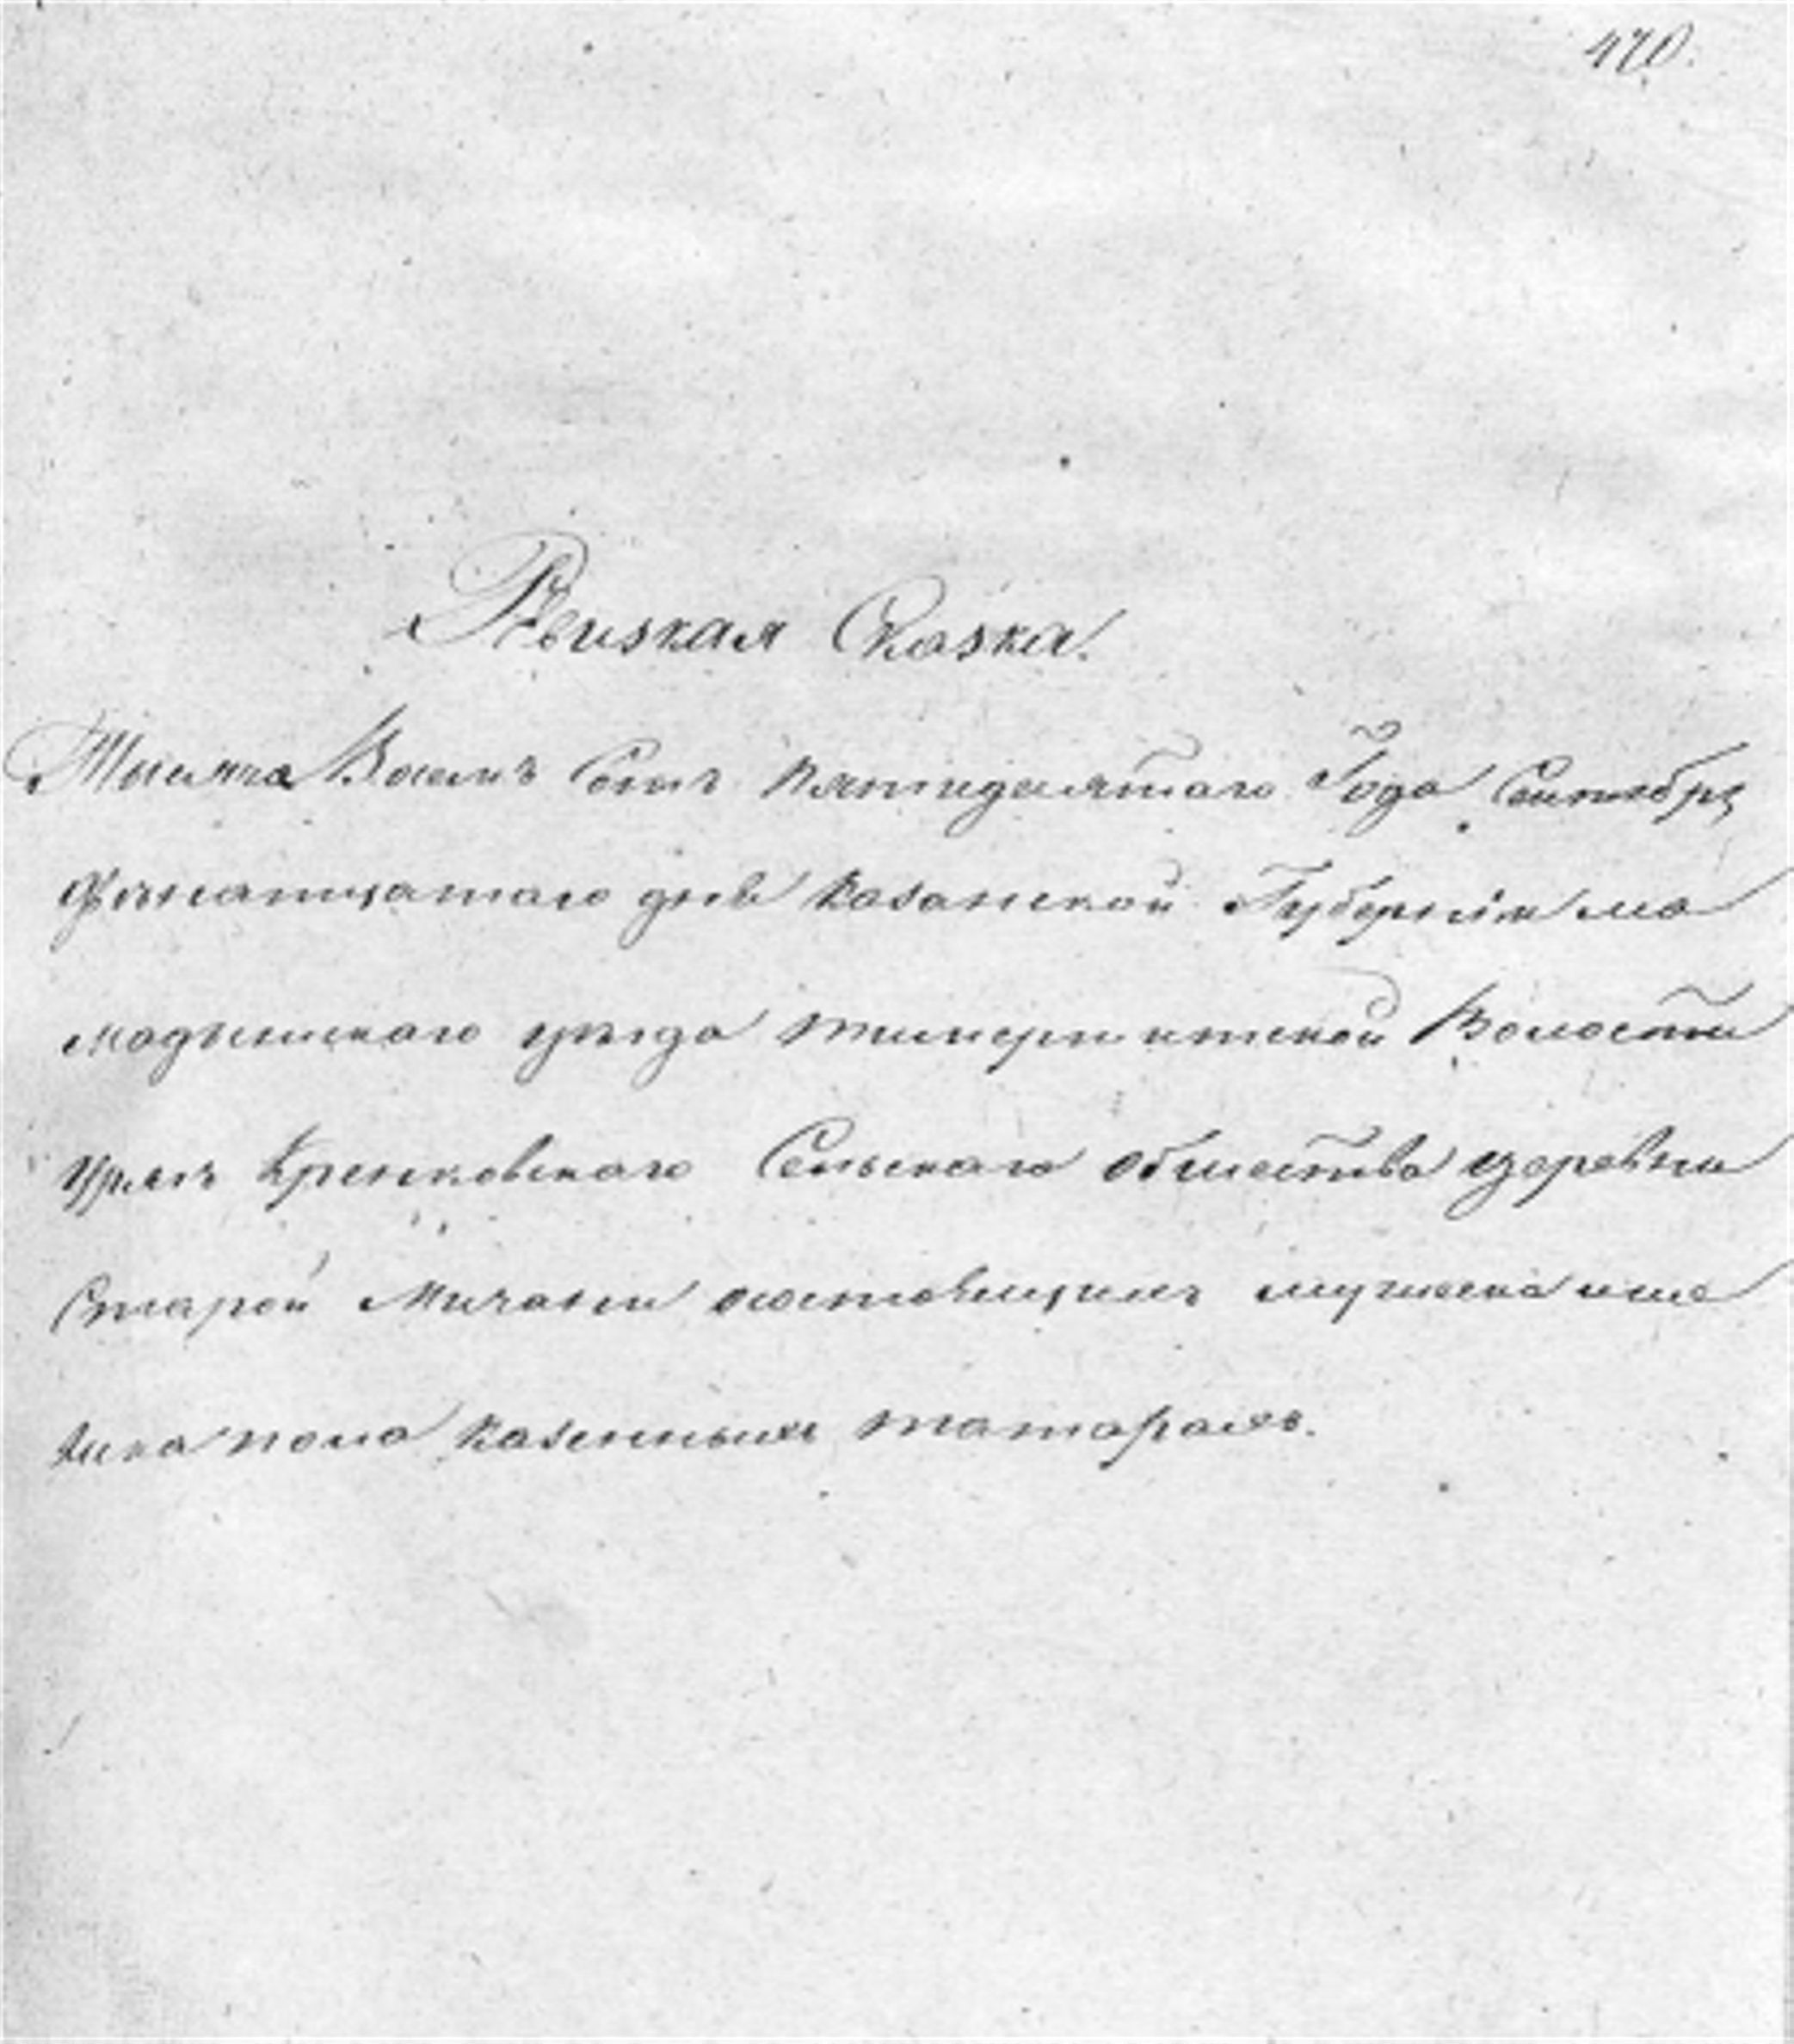 470.
Ревизкая Сказка.
Тысяча Восемъ Сотъ пятидесятаго Года Сентября
дня Казанской Губерніи ма
мадышскаго уѣзда волости
Сельскаго общества деревни
Старой состоящимъ мужеска и же
нска пола казеннымъ татарамъ.